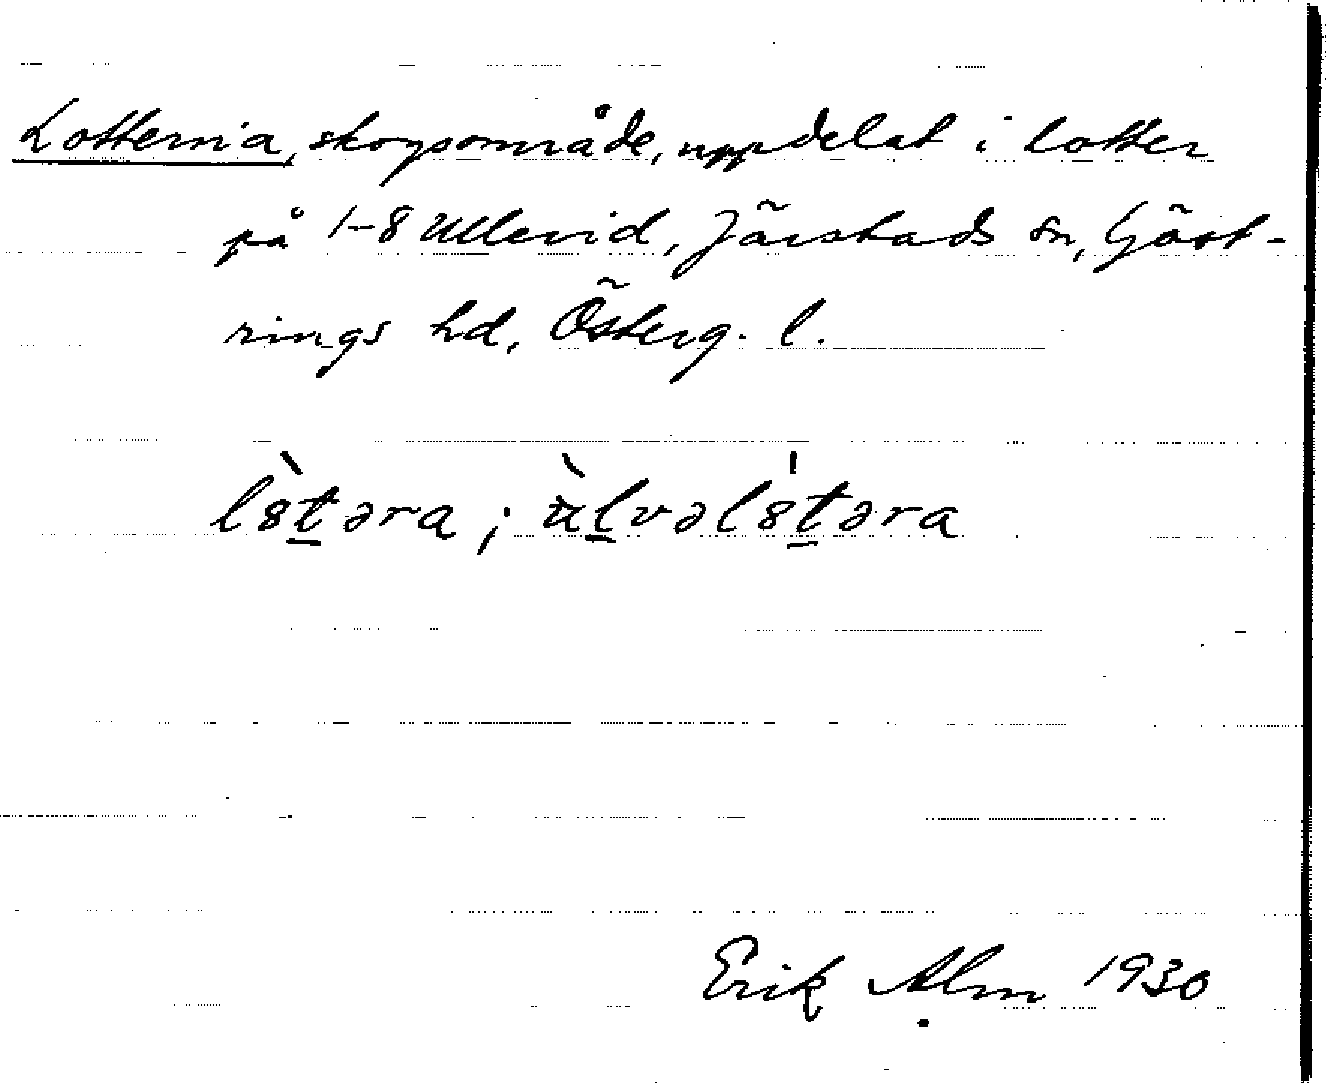 Lotterna, skogsområde, uppdelat i lotter
på 1-8 Ullevid, Järstads sn, Göst-
rings hd, Österg. l.
l8̀t̲əra; ùl̲vəl8̍t̲əra
Erik Alm 1930